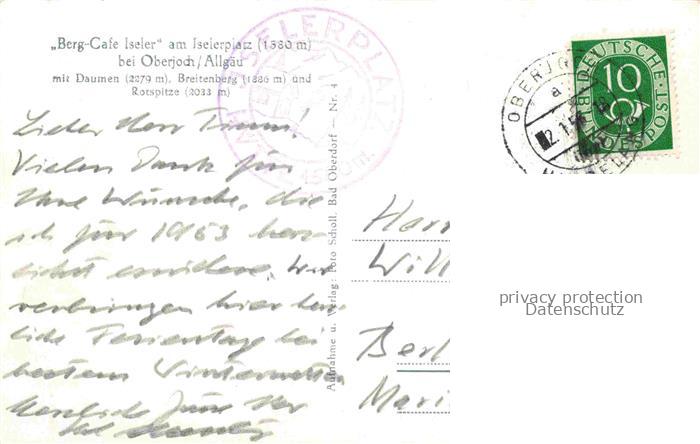 „Berg-Cafe Iseler" am Iselerplatz (1580 m)
bei Oberjoch/Allgäu
mit Daumen (2279 m), Breitenberg (1886 m) und
Rotspitze (2033 m)
Lieber Herr
Vielen Dank für
Ihre Wünsche, die
ich für 1953 herz-
lichst erwidere. Wir
verbringen hier herr-
liche Ferientage bei
bestem Winterwetter
Herzlichst Ihr
Aufnahme u. Verlag: Foto Scholl, Bad Oberdorf — Nr. 4
ISELERPLATZ
DEUTSCHE BUNDESPOST
10
OBERJO
a
2.1.5
Herr
Will
Berl
Mari
privacy protection
Datenschutz